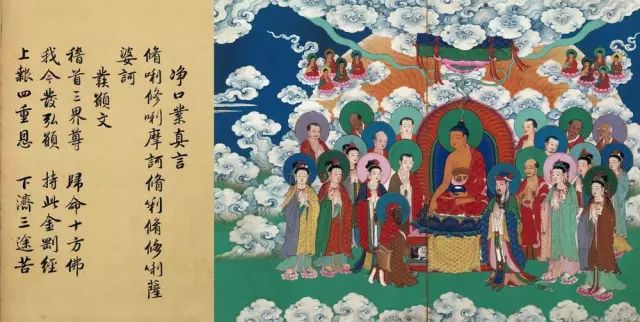 淨口業真言
脩唎修唎摩訶脩唎脩修唎薩
婆訶
發願文
稽首三界尊　歸命十方佛
我今發弘願　持此金剛經
上報四重恩　下濟三途苦